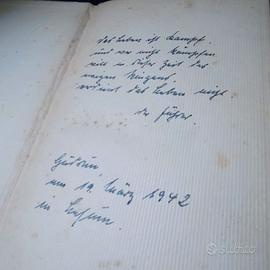 das Leben ist Kampf.
und wer nicht kämpfen
will in dieser Zeit des
ewigen Ringens,
verdient das Leben nicht.
der Führer.
Gudrun,
am 19. März 1942
in
subito